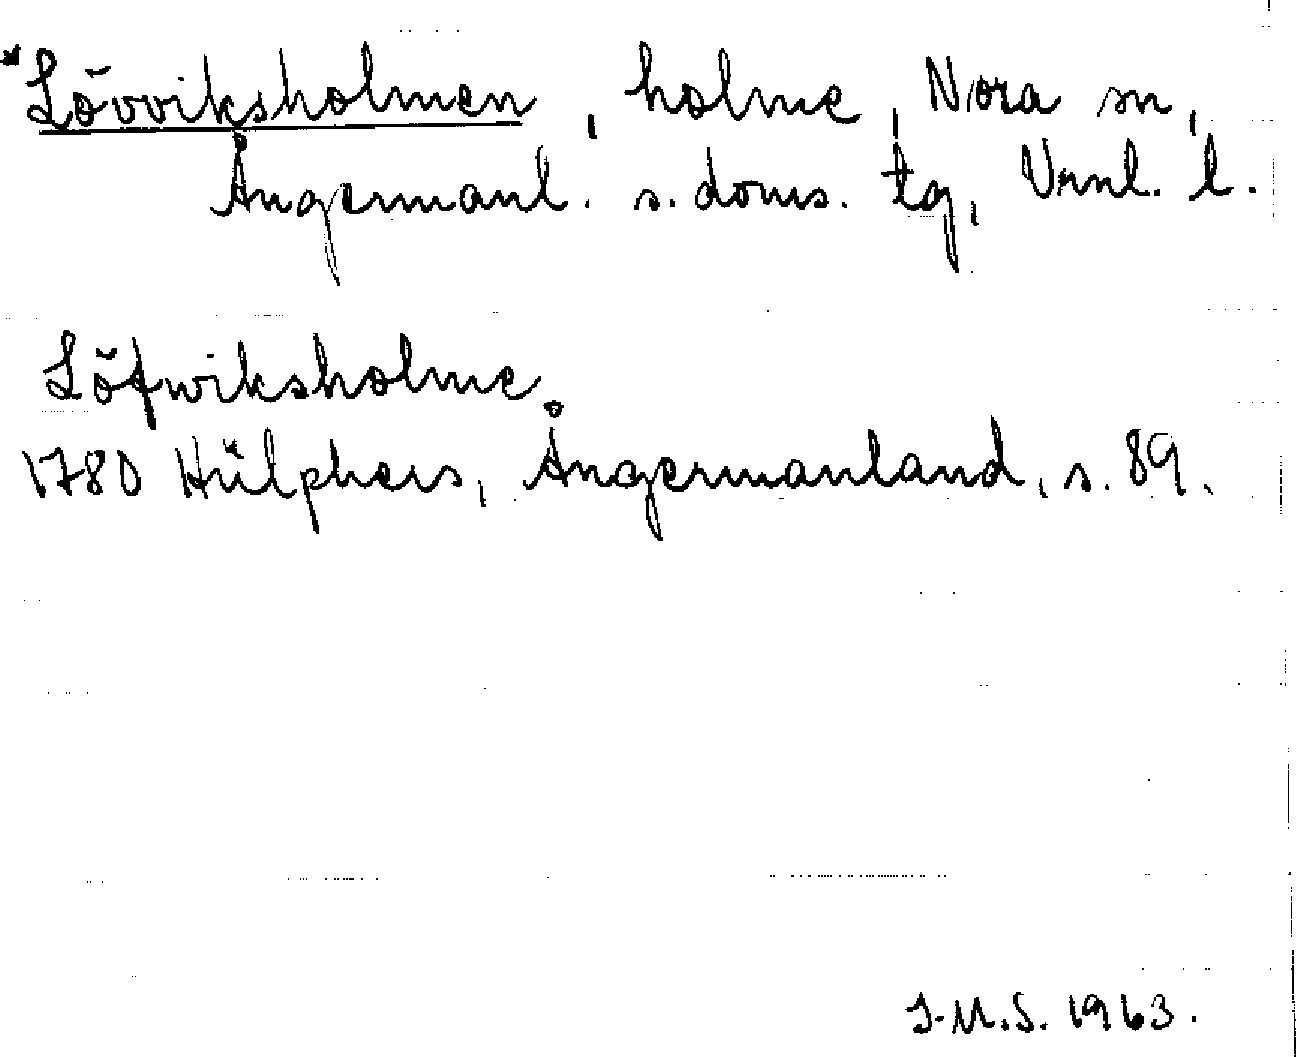 *Lövviksholmen, holme, Nora sn,
Ångermanl. s. doms. tg, Vnnl. l.
Löfwiksholme
1780 Hülphers, Ångermanland, s. 89.
I.M.S. 1963.